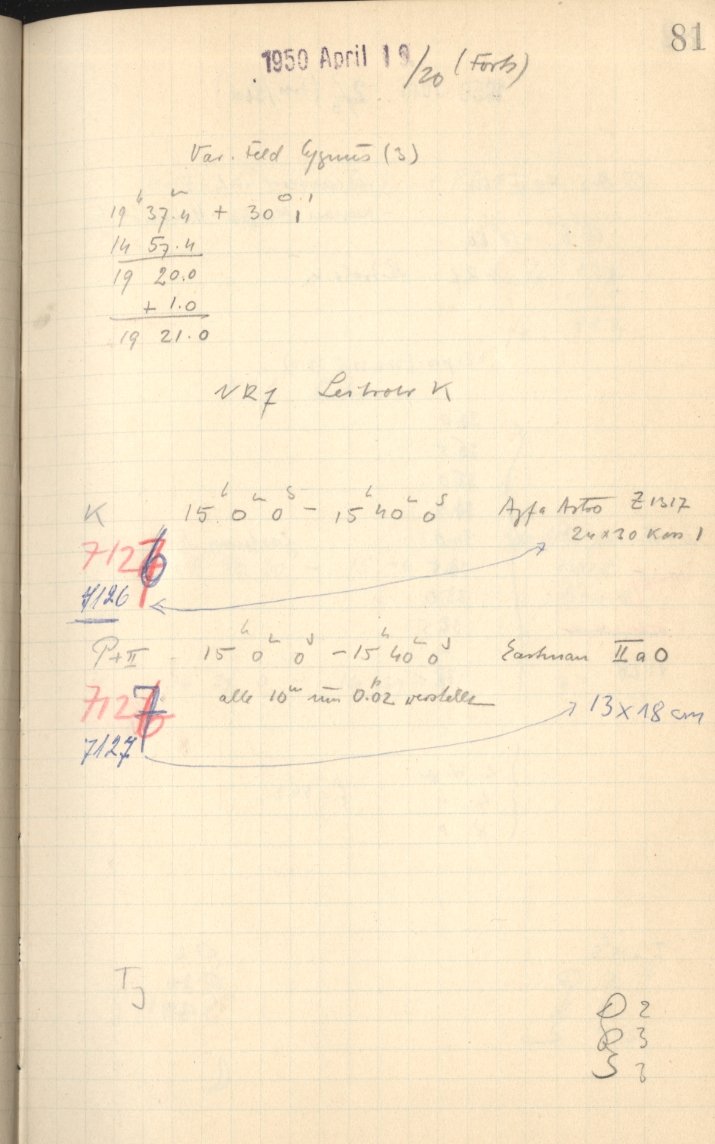 81
1950 April 19/20 (Forts)
Var. Feld Cygnus (3)
19ʰ 37.4ᵐ + 30° 1'
14 57.4
19 20.0
+ 1.0
19 21.0
NR 7 Leitrohr K
K 15ʰ 0ᵐ 0ˢ - 15ʰ 40ᵐ 0ˢ Agfa Astro Z 1317
24 x 30 Kass 1
7126
7126
P+II 15ʰ 0ᵐ 0ˢ - 15ʰ 40ᵐ 0ˢ Eastman II a O
7127 alle 10ᵐ um 0.02 verstellen 13 x 18 cm
7127
TJ
D 2
R 3
S 3